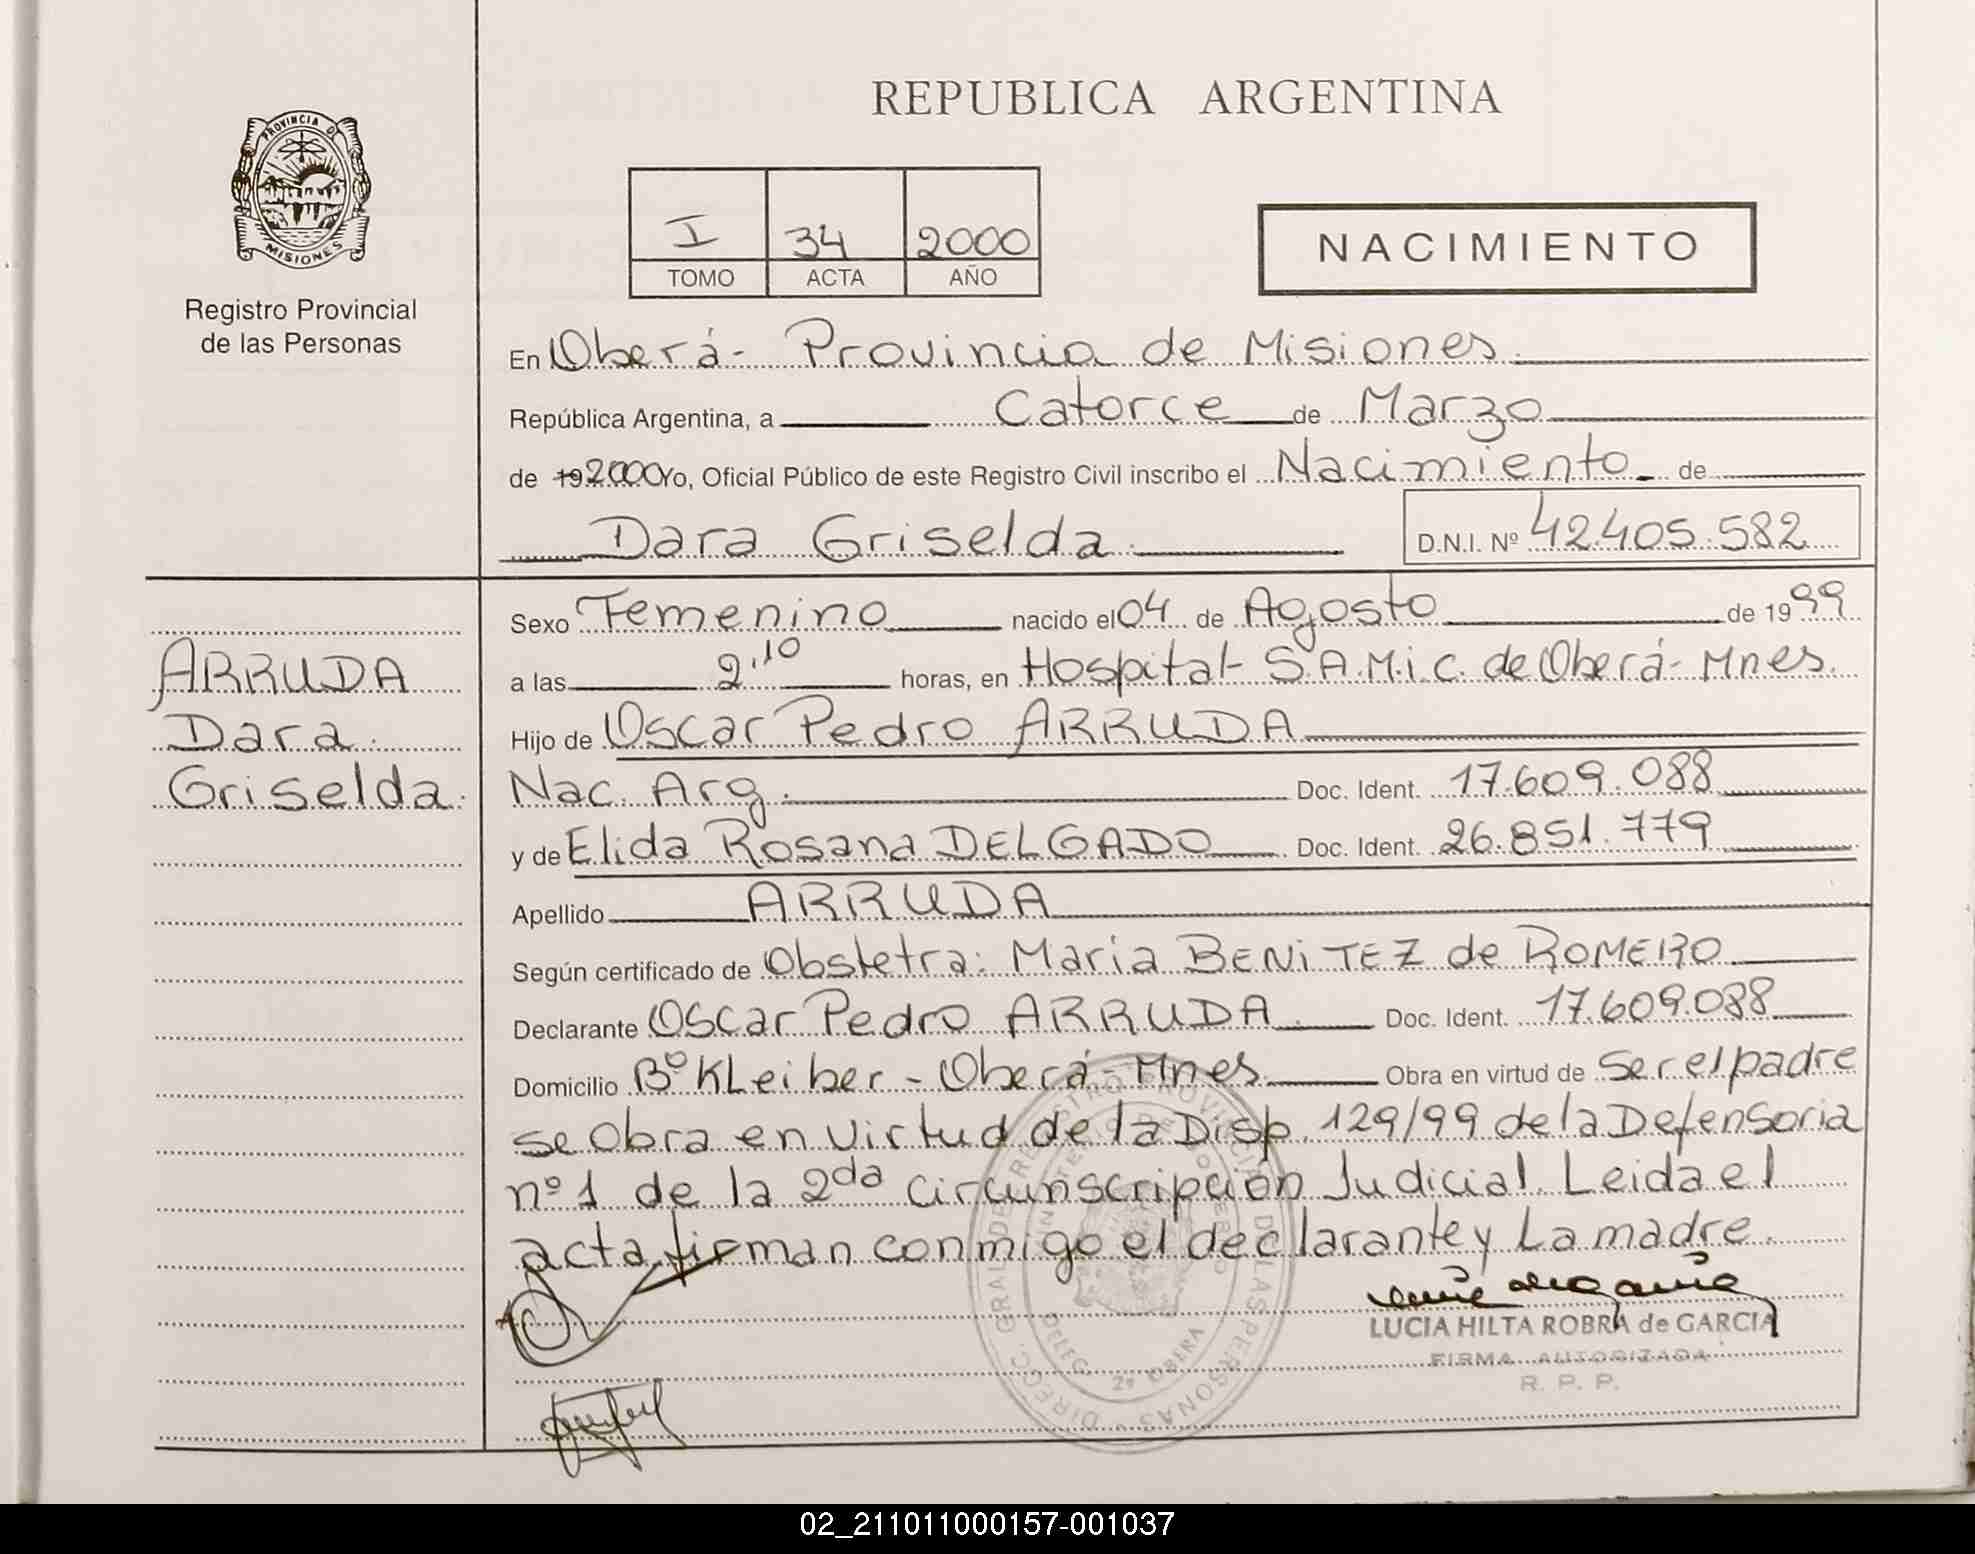 REPUBLICA ARGENTINA
PROVINCIA D
MISIONES
Registro Provincial
de las Personas
I 34 2000
TOMO ACTA AÑO
NACIMIENTO
En Oberá- Provincia de Misiones.
República Argentina, a Catorce de Marzo
de 19 2000 Yo, Oficial Público de este Registro Civil inscribo el Nacimiento de
Dara Griselda.
D.N.I. Nº 42.405.582
Sexo Femenino nacido el 04 de Agosto de 1999
a las 2'10 horas, en Hospital- S.A.M.i.C. de Oberá- Mnes.
Hijo de Oscar Pedro ARRUDA
Nac. Arg. Doc. Ident. 17.609.088
y de Elida Rosana DELGADO Doc. Ident. 26.851.779
Apellido ARRUDA
Según certificado de Obstetra: Maria BENiTEZ de ROMERO
Declarante Oscar Pedro ARRUDA. Doc. Ident. 17.609.088
Domicilio Bº KLeiber - Oberá- Mnes. Obra en virtud de Ser el padre
se Obra en virtud de la Disp. 129/99 de la Defensoria
nº 1 de la 2da Circunscripción Judicial. Leida el
acta firman conmigo el declarante y La madre.
ARRUDA
Dara
Griselda.
LUCIA HILTA ROBRA de GARCIA
FIRMA AUTORIZADA
R. P. P.
DIRECC. GRAL. DE REGISTRO PROVINCIAL DE LAS PERSONAS
MINISTERIO DE GOBIERNO
DELEG. 2ª OBERA
02_211011000157-001037